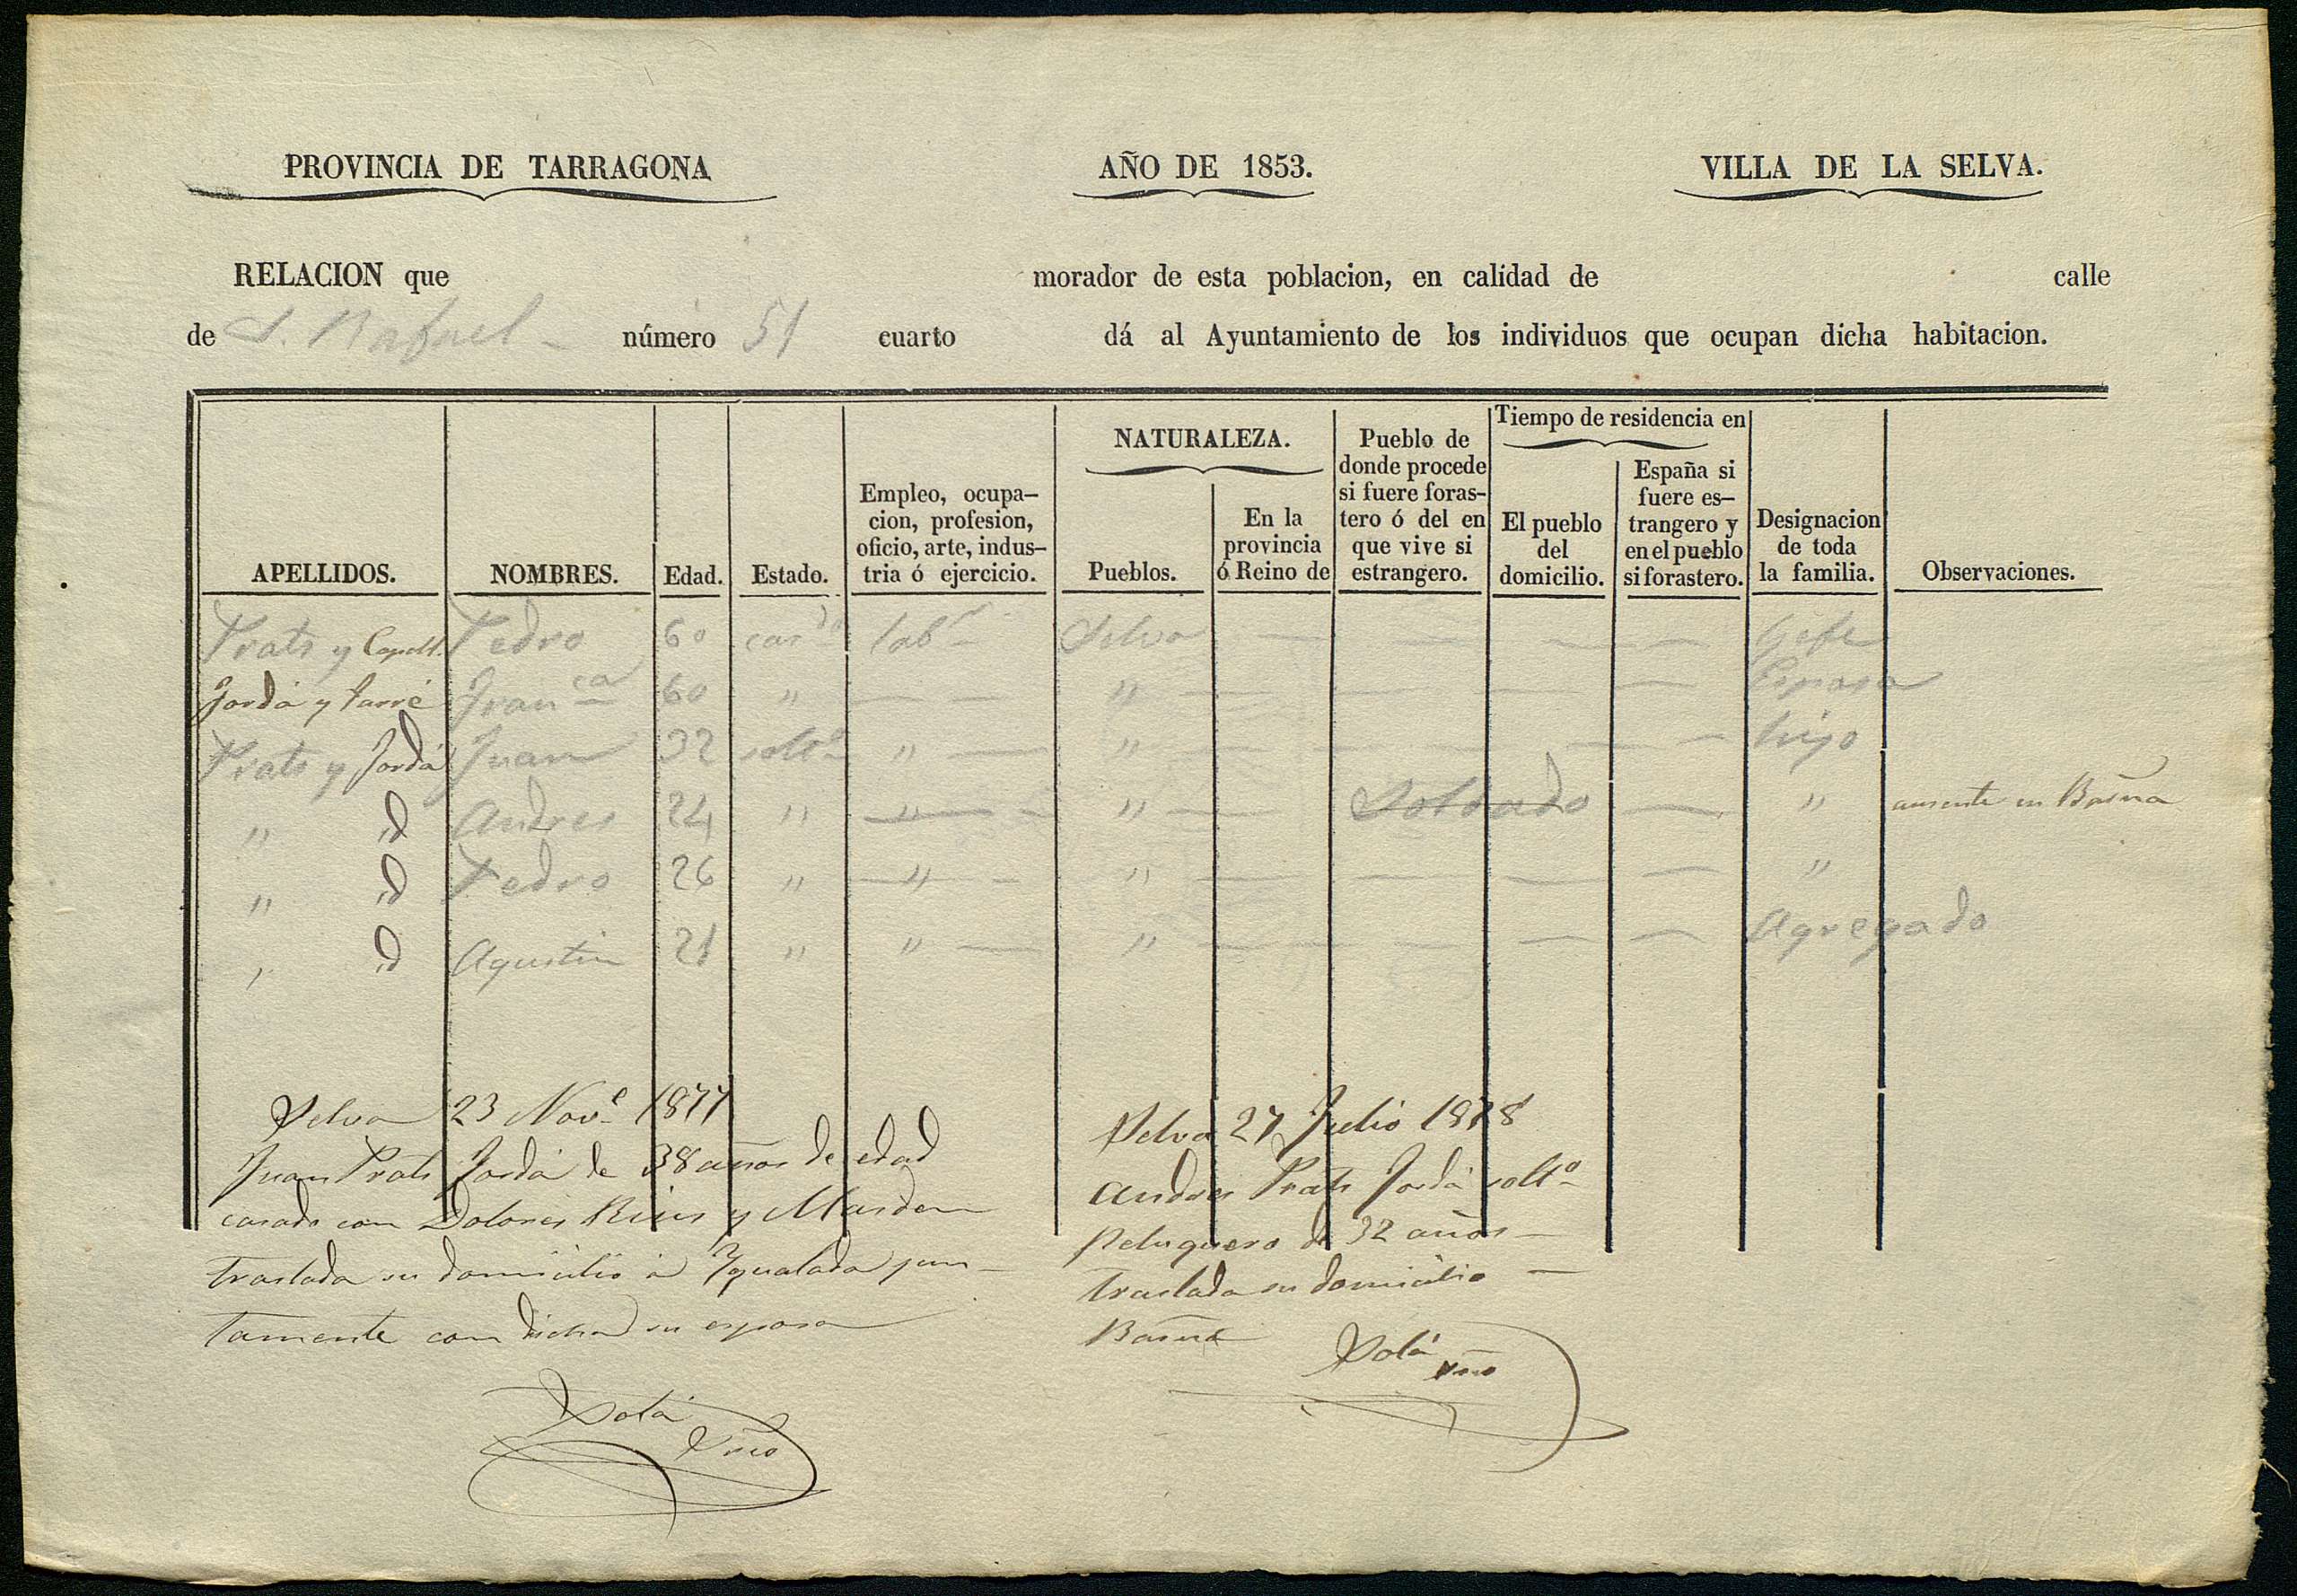 PROVINCIA DE TARRAGONA AÑO DE 1853. VILLA DE LA SELVA.
RELACION que morador de esta poblacion, en calidad de calle
de S. Rafael número 51 cuarto dá al Ayuntamiento de los individuos que ocupan dicha habitacion.
APELLIDOS. NOMBRES. Edad. Estado. Empleo, ocupa-
cion, profesion,
oficio, arte, indus-
tria ó ejercicio.
NATURALEZA.
Pueblos.
En la
provincia
ó Reino de
Pueblo de
donde procede
si fuere foras-
tero ó del en
que vive si
estrangero.
Tiempo de residencia en
El pueblo
del
domicilio.
España si
fuere es-
trangero y
en el pueblo
si forastero.
Designacion
de toda
la familia.
Observaciones.
Prats y Capell. Pedro 60 cas.do lab.r Selva — — — — Gefe
Jordá y Farré Fran.ca 60 " — " — — — — Esposa
Prats y Jordá Juan 32 solt.o " — " — — — — hijo
" id Andres 24 " " — " — Soldado — " ausente en Barna
" id Pedro 26 " — " — " — — — — "
" id Agustin 21 " " — " — — — — — Agregado
Selva 23 Nov.e 1877
Juan Prats Jordá de 38 años de edad
casado con Dolores Rius y Masdeu
traslada su domicilio á Ygualada jun-
tamente con dicha su esposa
Solá
Srio
Selva 27 Julio 1878
Andres Prats Jordá solt.o
peluquero de 32 años —
traslada su domicilio —
Barna
Solá
Srio